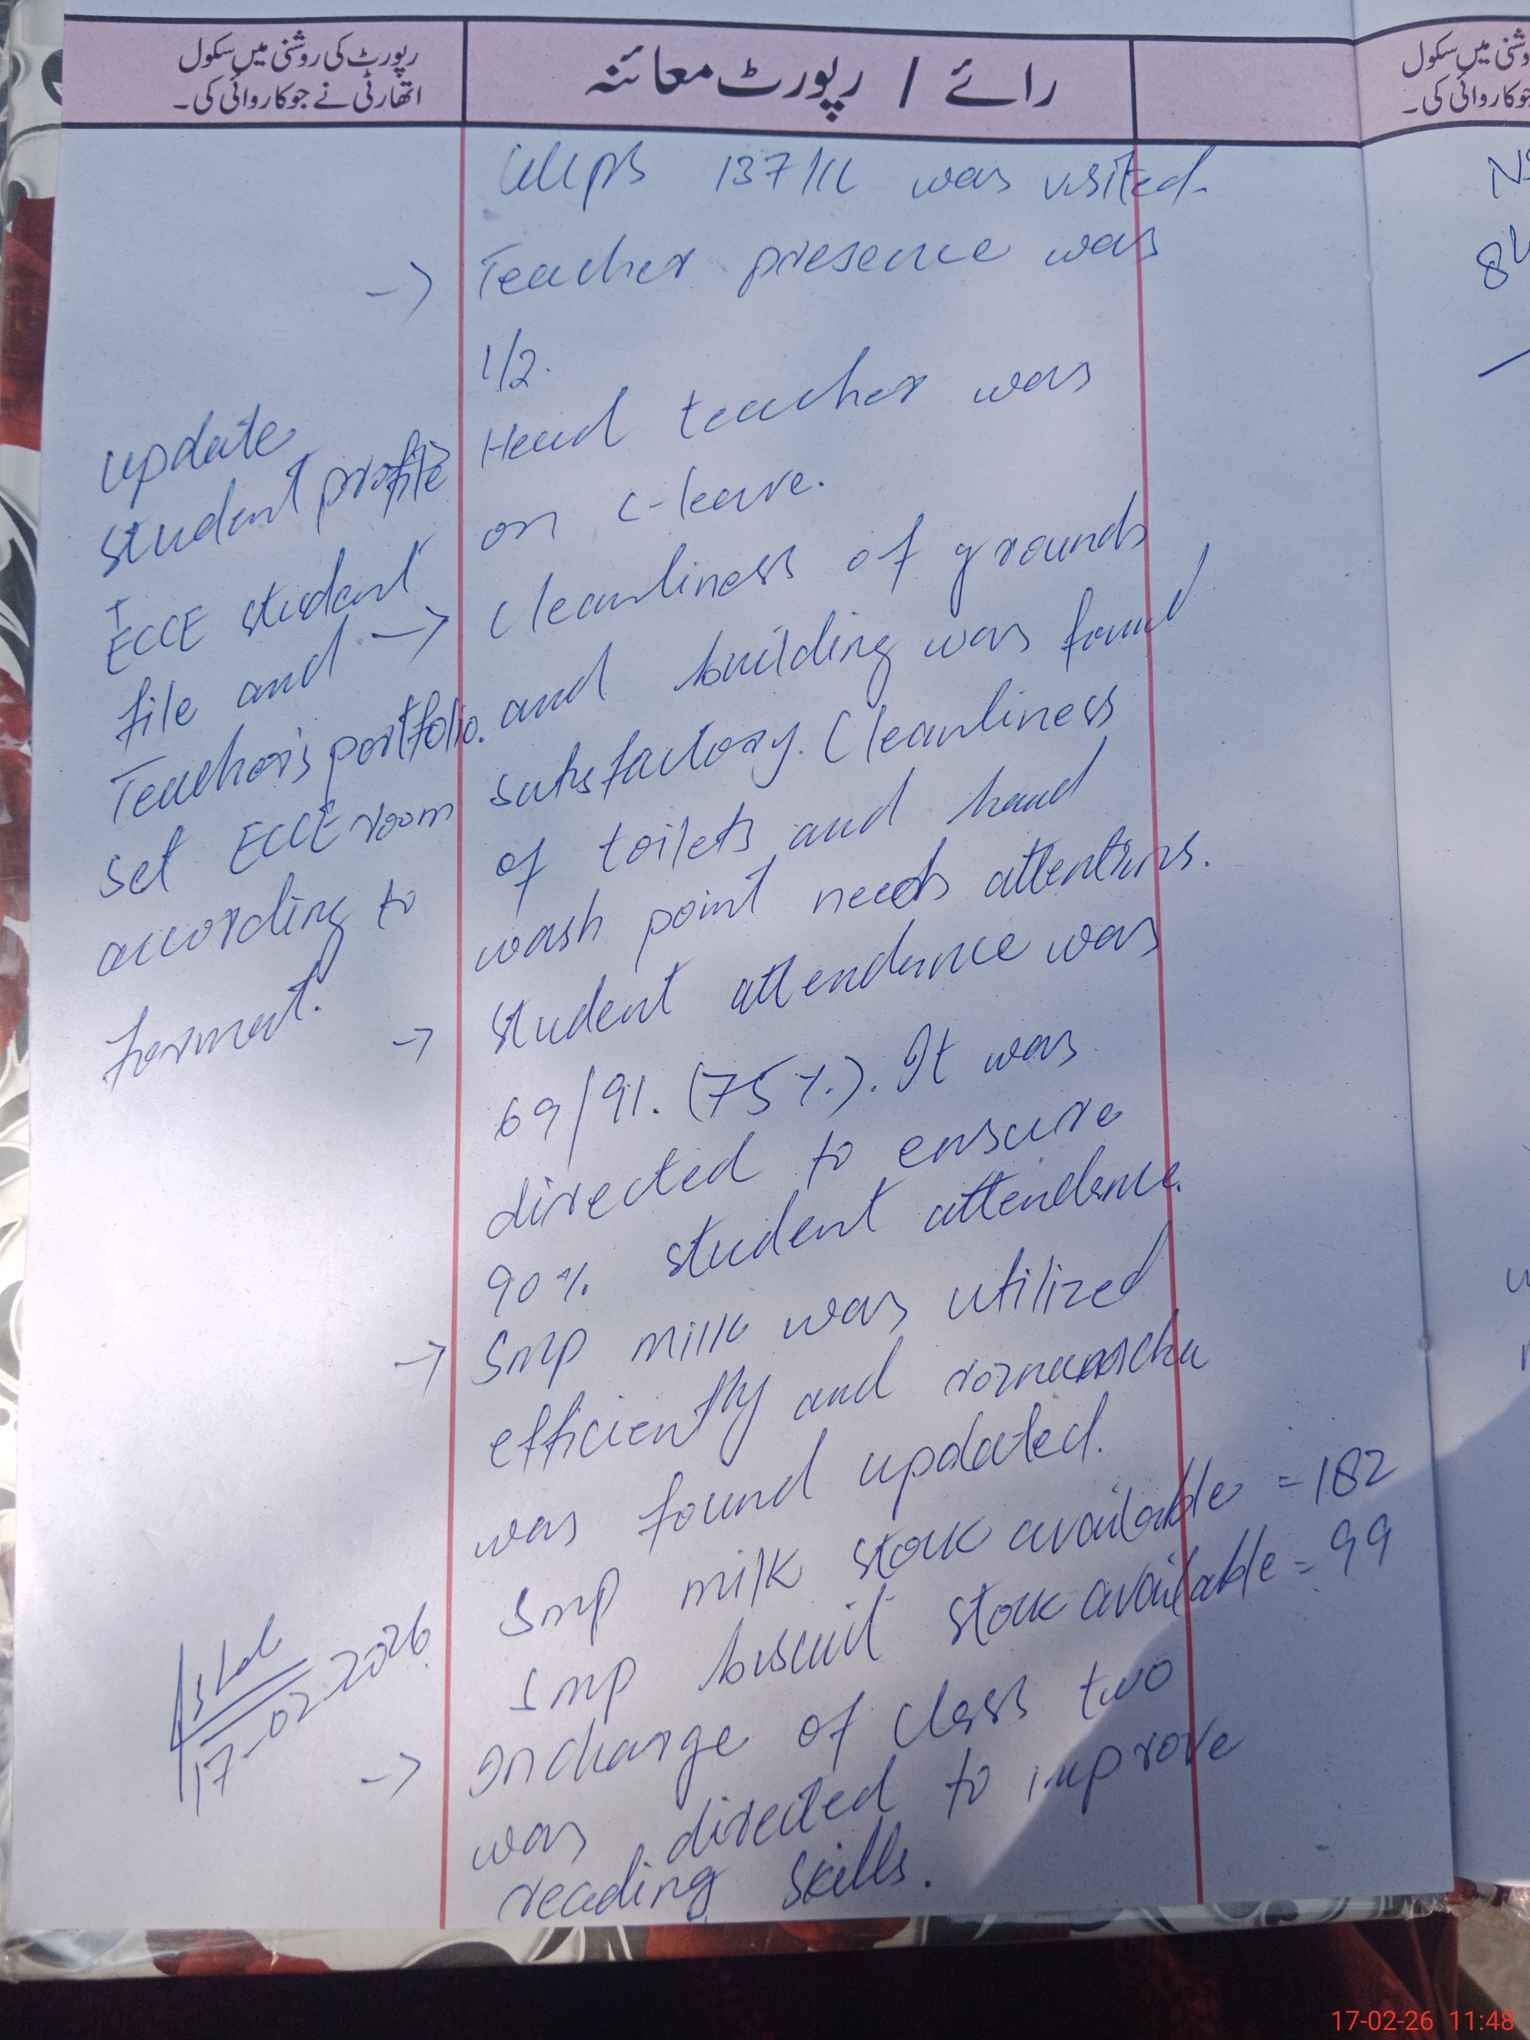 رپورٹ کی روشنی میں سکول
اتھارٹی نے جو کاروائی کی۔
رائے / رپورٹ معائنہ
وشنی میں سکول
جو کاروائی کی۔
was visited.
→ Teacher presence was
1/2.
→ Head teacher was
on C-leave.
→ Cleanliness of grounds
and building was found
satisfactory. Cleanliness
of toilets and hand
wash point needs attentions.
→ Student attendance was
69/91. (75%). It was
directed to ensure
90% student attendance.
→ SMP milk was utilized
efficiently and roznamcha
was found updated.
SMP milk stock available = 182
SMP biscuit stock available = 99
→ Incharge of class two
was directed to improve
reading skills.
update
student profile
ECCE student
file and
Teacher's portfolio.
set ECCE room
according to
format.
17-02-2026
17-02-26 11:48